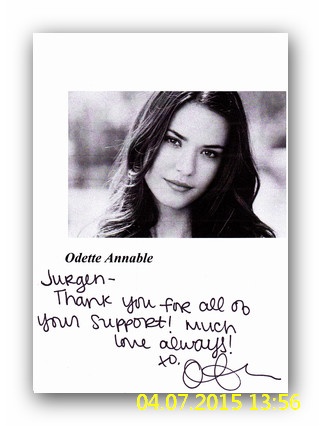 Odette Annable
Jurgen-
Thank you for all of
your support! Much
love always!
xo.
04.07.2015 13:56